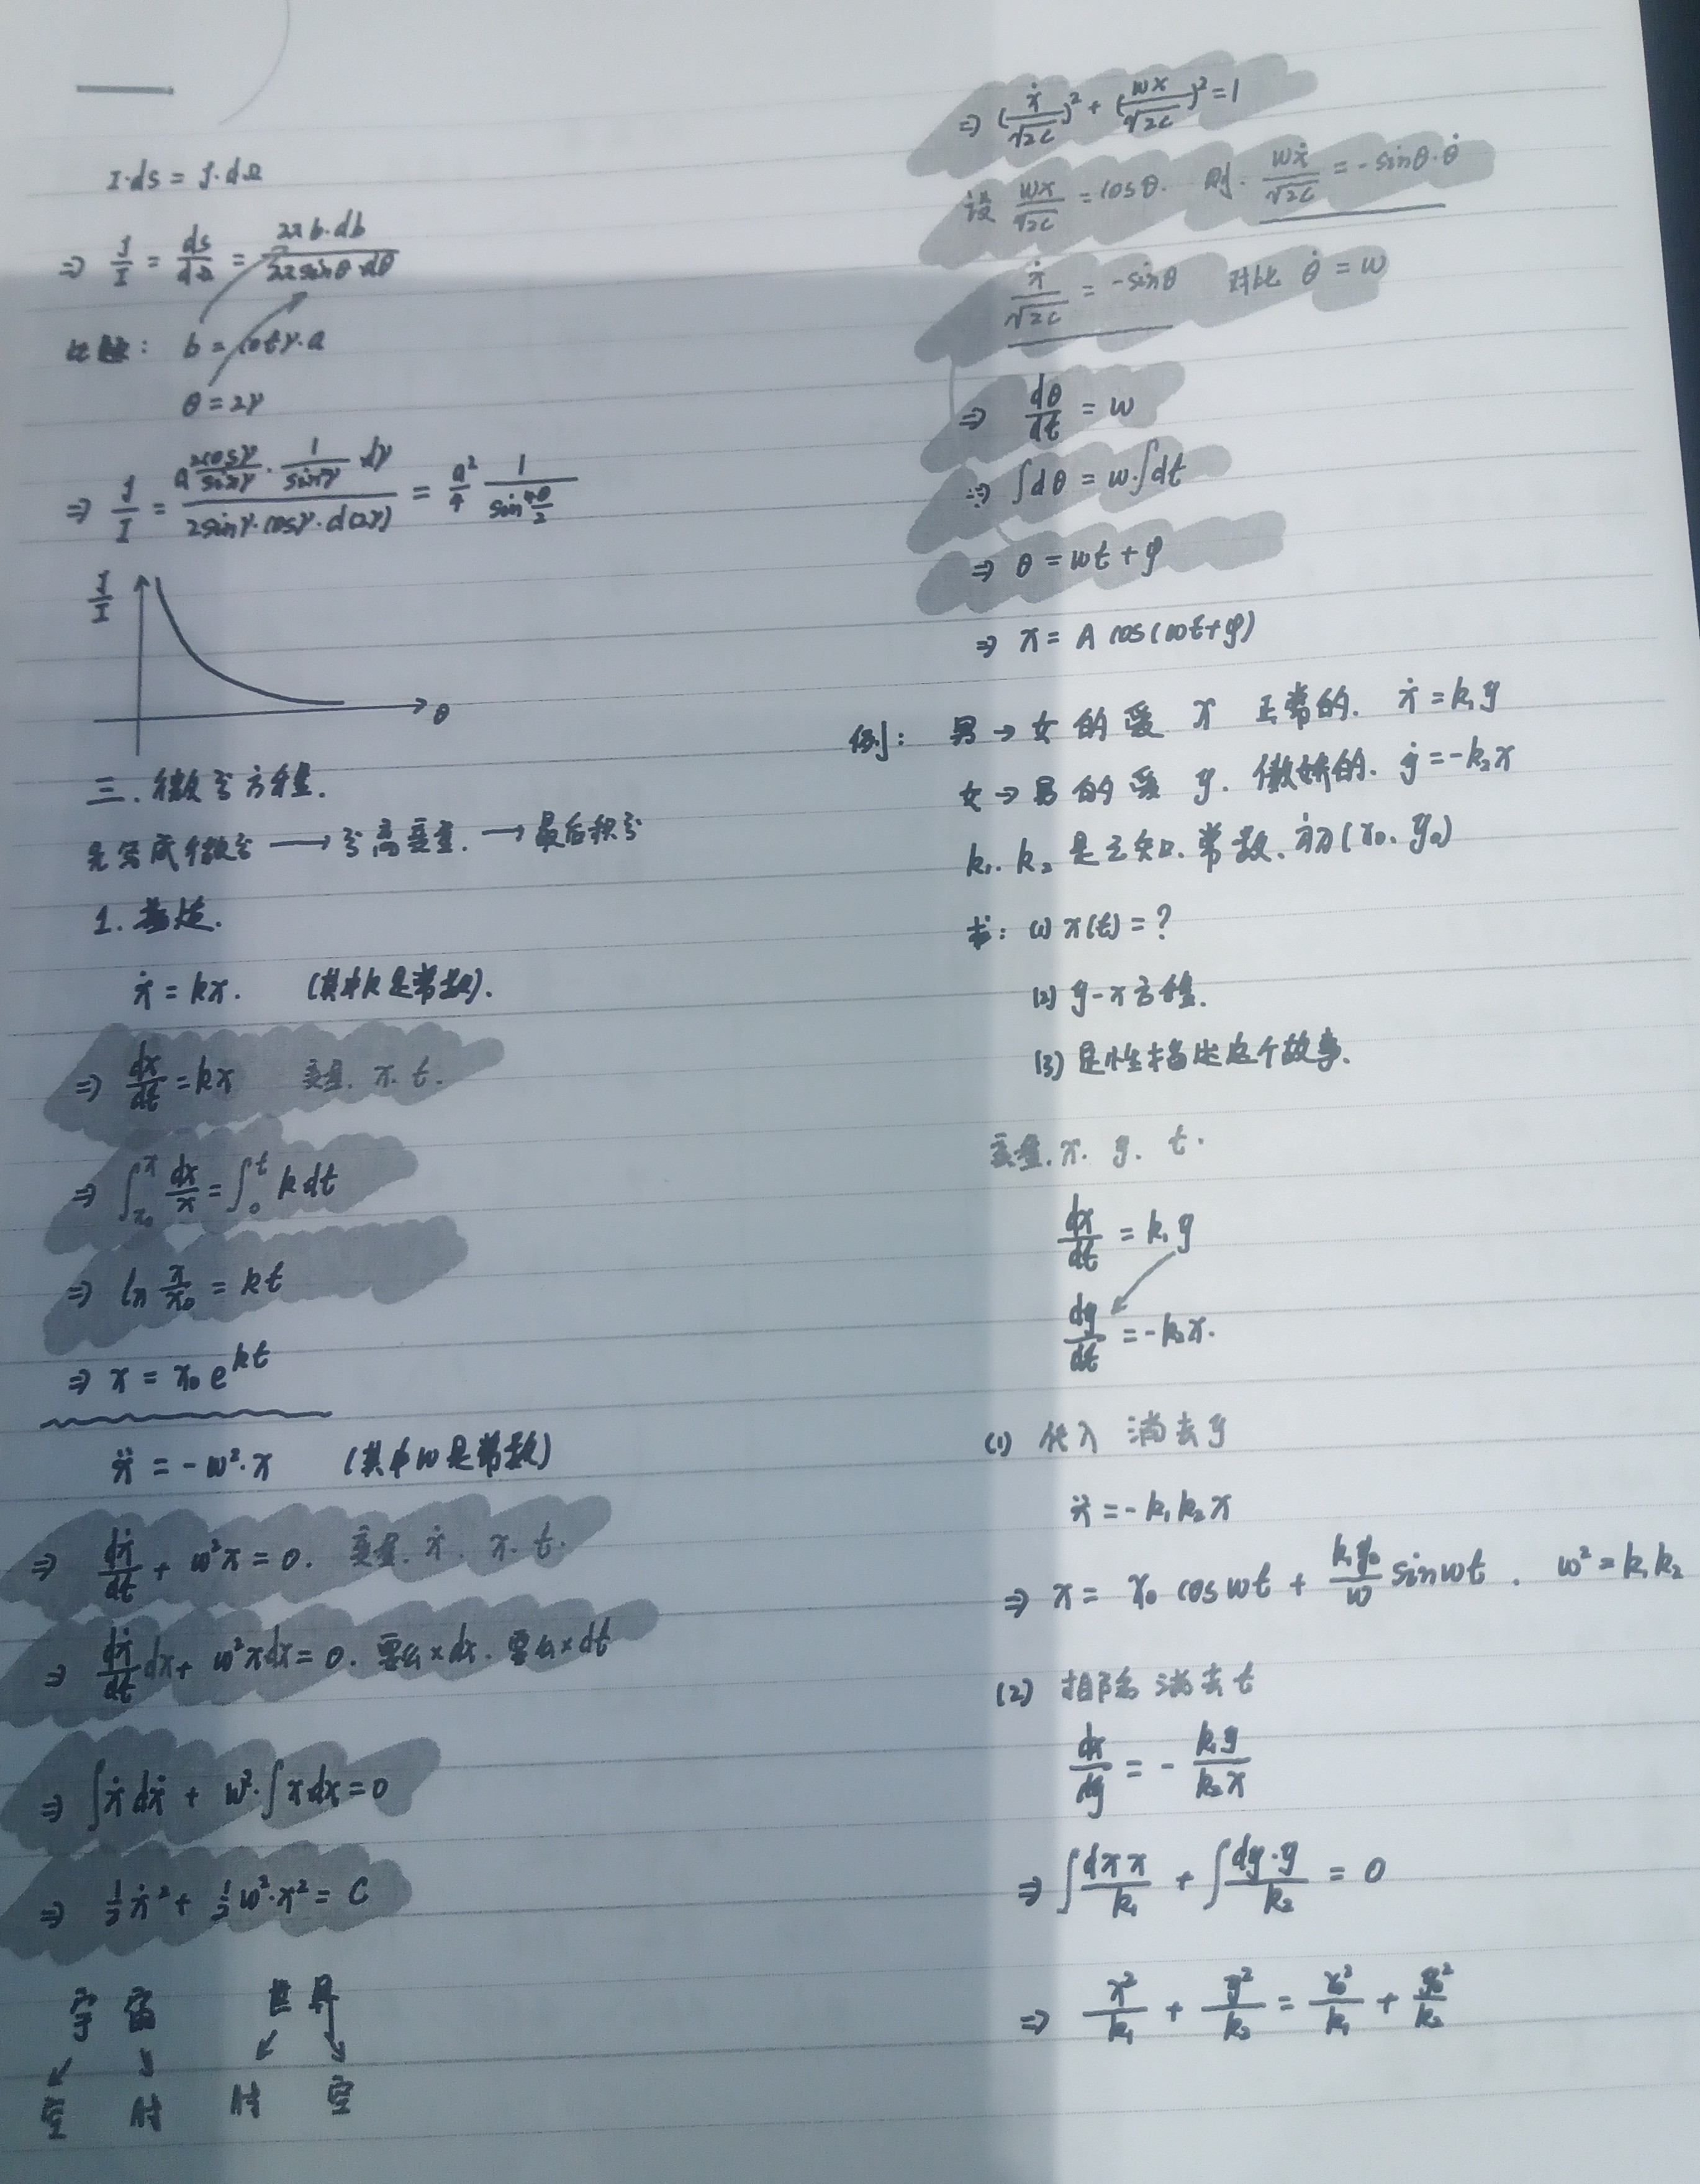 I·ds = J·dΩ
⇒ J/I = ds/dΩ = 2πb·db/2πsinθ·dθ
b = cotγ·a
θ = 2γ
⇒ J/I = a² cosγ/sinγ · 1/sin²γ dγ / 2sinγ·cosγ·d(2γ) = a²/4 1/sin⁴θ/2
J/I
θ
三.微分方程.
先写成微分 → 分离变量. → 最后积分
1.
ẋ = kx. (其中k是常数).
⇒ dx/dt = kx 变量. x. t.
⇒ ∫_{x₀}^{x} dx/x = ∫_{0}^{t} k dt
⇒ ln x/x₀ = kt
⇒ x = x₀ e^{kt}
ẍ = -w²·x (其中w是常数)
⇒ dẋ/dt + w²x = 0. 变量. ẋ. x. t.
⇒ dẋ/dt dx + w²xdx = 0. 要么×dx. 要么×dt
⇒ ∫ẋ dẋ + w²·∫x dx = 0
⇒ ½ẋ² + ½w²·x² = C
宇 宙 世 界
空 时 时 空
⇒ (ẋ/√2C)² + (wx/√2C)² = 1
设 wx/√2C = cosθ. 则. wẋ/√2C = -sinθ·θ̇
ẋ/√2C = -sinθ 对比 θ̇ = w
⇒ dθ/dt = w
⇒ ∫dθ = w·∫dt
⇒ θ = wt + φ
⇒ x = A cos(wt+φ)
例: 男→女的爱 x 正常的. ẋ = k₁y
女→男的爱 y. 傲娇的. ẏ = -k₂x
k₁. k₂ 是已知. 常数. 初(x₀. y₀)
求: (1) x(t) = ?
(2) y-x方程.
(3) 定性描述这个故事.
变量. x. y. t.
dx/dt = k₁y
dy/dt = -k₂x.
(1) 代入 消去y
ẍ = -k₁k₂x
⇒ x = x₀ coswt + k₁y₀/w sinwt. w² = k₁k₂
(2) 相除 消去t
dx/dy = - k₁y/k₂x
⇒ ∫dx x/k₁ + ∫dy·y/k₂ = 0
⇒ x²/k₁ + y²/k₂ = x₀²/k₁ + y₀²/k₂